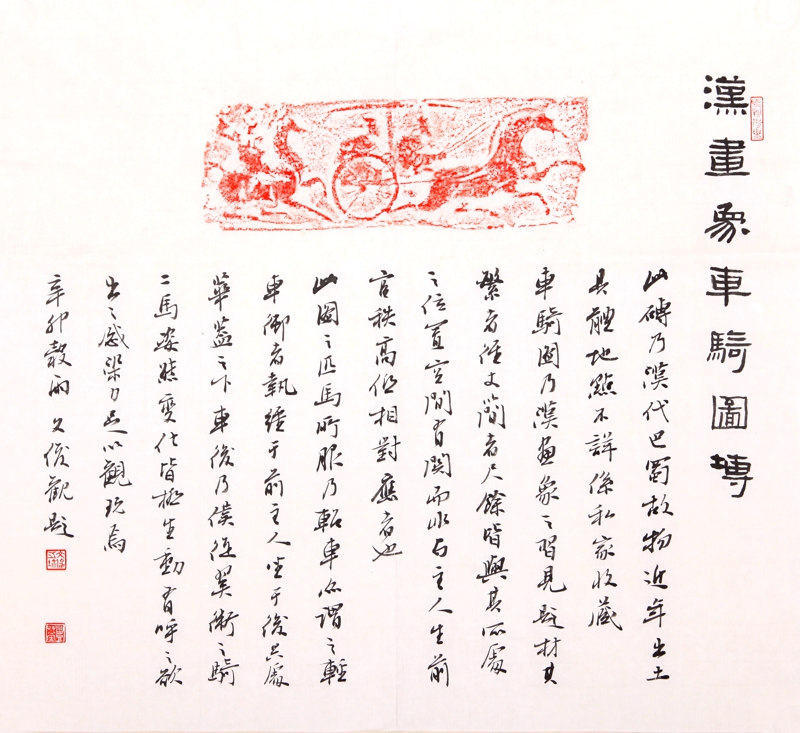 漢畫象車騎圖塼
此磚乃漢代巴蜀故物近年出土
具體地點不詳係私家收藏
車騎圖乃漢畫象之習見題材其
繁者徑丈簡者尺餘皆與其所處
之位置空間有關而亦与主人生前
官秩高低相對應者也
此圖之匹馬所服乃軺車所謂之輕
車御者執轡于前主人坐于後其處
華蓋之下車後乃僕從翼衛之騎
二馬姿態變化皆極生動有呼之欲
出之感梁力足以觀玩焉
辛卯穀雨文俊觀題